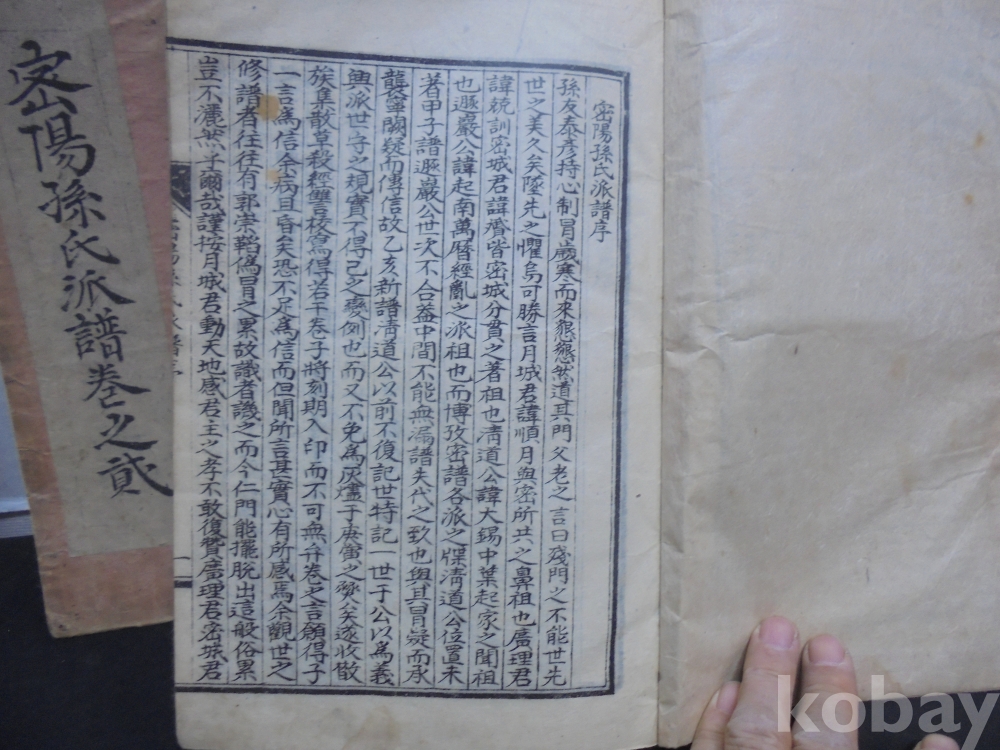 密陽孫氏派譜序
孫友泰彥持心制冒歲寒而來懇懇然道其門父老之言曰殘門之不能世先
世之美久矣墜先之懼烏可勝言月城君諱順月與密所共之鼻祖也廣理君
諱統訓密城君諱贊皆密城分貫之著祖也淸道公諱大錫中葉起家之聞祖
也遯巖公諱起南萬曆經亂之派祖也而博攷密譜各派之牒淸道公位置未
著甲子譜遯巖公世次不合益中間不能無漏譜失代之致也與其冒疑而承
襲寧闕疑而傳信故乙亥新譜淸道公以前不復記世特記一世于公以爲義
興派世守之規實不得已之變例也而又不免爲灰燼于庚寅之燹矣遂收散
族集散草殺經讐校寫得若干卷子將刻期入印而不可無弁卷之言願得子
一言爲信余病且昏矣恐不足爲信而但聞所言甚實心有所感焉余觀世之
修譜者往往有郭崇韜僞冒之累故識者譏之而今仁門能擺脫出這般俗累
豈不灑然乎爾哉謹按月城君動天地感君主之孝不敢復贊廣理君密城君
一
密陽孫氏派譜卷之貳
kobay